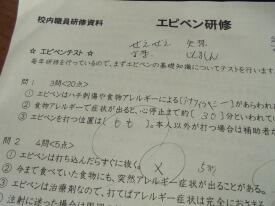 校内職員研修資料
エピペン研修
☆ エピペンテスト ☆
毎年研修を行っているので、まずエピペンの基礎知識についてテストを行います
問1 3問<20点>
① エピペンはハチ刺傷や食物アレルギーによる(アナフィラキシー)があらわれ
② 食物アレルギーで症状が出ると、心停止まで約( 30 )分といわれて
③ エピペンを打つ位置は( もも )。本人以外が打つ場合は補助者が
問2 4問<5点>
① エピペンは打ち込んだらすぐに抜く( × 5秒
② 今まで食べていた食物にも、突然アレルギー症状が出ることがある。
③ エピペンは治療薬なので、打てばアレルギー症状は完全におさまる
④ 注射に迷った場合は